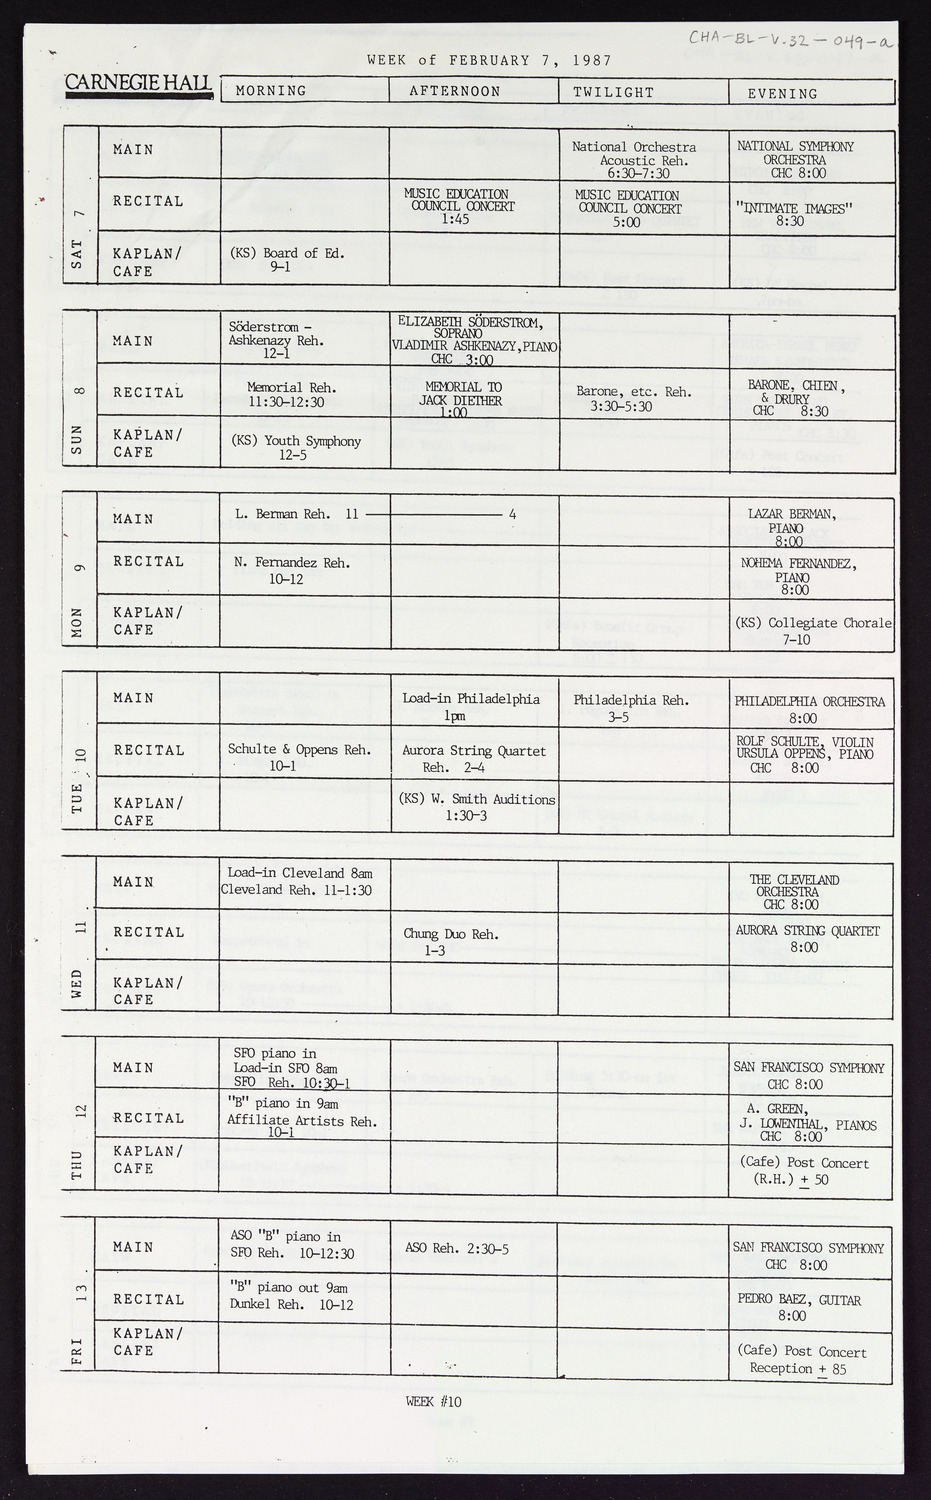 CHA-BL-V.32-049-a
WEEK of FEBRUARY 7, 1987
CARNEGIE HALL
MORNING AFTERNOON TWILIGHT EVENING
SAT 7
MAIN
National Orchestra
Acoustic Reh.
6:30-7:30
NATIONAL SYMPHONY
ORCHESTRA
CHC 8:00
RECITAL
MUSIC EDUCATION
COUNCIL CONCERT
1:45
MUSIC EDUCATION
COUNCIL CONCERT
5:00
"INTIMATE IMAGES"
8:30
KAPLAN/
CAFE
(KS) Board of Ed.
9-1
SUN 8
MAIN
Söderstrom -
Ashkenazy Reh.
12-1
ELIZABETH SÖDERSTROM,
SOPRANO
VLADIMIR ASHKENAZY,PIANO
CHC 3:00
RECITAL
Memorial Reh.
11:30-12:30
MEMORIAL TO
JACK DIETHER
1:00
Barone, etc. Reh.
3:30-5:30
BARONE, CHIEN,
& DRURY
CHC 8:30
KAPLAN/
CAFE
(KS) Youth Symphony
12-5
MON 9
MAIN
L. Berman Reh. 11 — 4
LAZAR BERMAN,
PIANO
8:00
RECITAL
N. Fernandez Reh.
10-12
NOHEMA FERNANDEZ,
PIANO
8:00
KAPLAN/
CAFE
(KS) Collegiate Chorale
7-10
TUE 10
MAIN
Load-in Philadelphia
1pm
Philadelphia Reh.
3-5
PHILADELPHIA ORCHESTRA
8:00
RECITAL
Schulte & Oppens Reh.
10-1
Aurora String Quartet
Reh. 2-4
ROLF SCHULTE, VIOLIN
URSULA OPPENS, PIANO
CHC 8:00
KAPLAN/
CAFE
(KS) W. Smith Auditions
1:30-3
WED 11
MAIN
Load-in Cleveland 8am
Cleveland Reh. 11-1:30
THE CLEVELAND
ORCHESTRA
CHC 8:00
RECITAL
Chung Duo Reh.
1-3
AURORA STRING QUARTET
8:00
KAPLAN/
CAFE
THU 12
MAIN
SFO piano in
Load-in SFO 8am
SFO Reh. 10:30-1
SAN FRANCISCO SYMPHONY
CHC 8:00
RECITAL
"B" piano in 9am
Affiliate Artists Reh.
10-1
A. GREEN,
J. LOWENTHAL, PIANOS
CHC 8:00
KAPLAN/
CAFE
(Cafe) Post Concert
(R.H.) ± 50
FRI 13
MAIN
ASO "B" piano in
SFO Reh. 10-12:30
ASO Reh. 2:30-5
SAN FRANCISCO SYMPHONY
CHC 8:00
RECITAL
"B" piano out 9am
Dunkel Reh. 10-12
PEDRO BAEZ, GUITAR
8:00
KAPLAN/
CAFE
(Cafe) Post Concert
Reception ± 85
WEEK #10